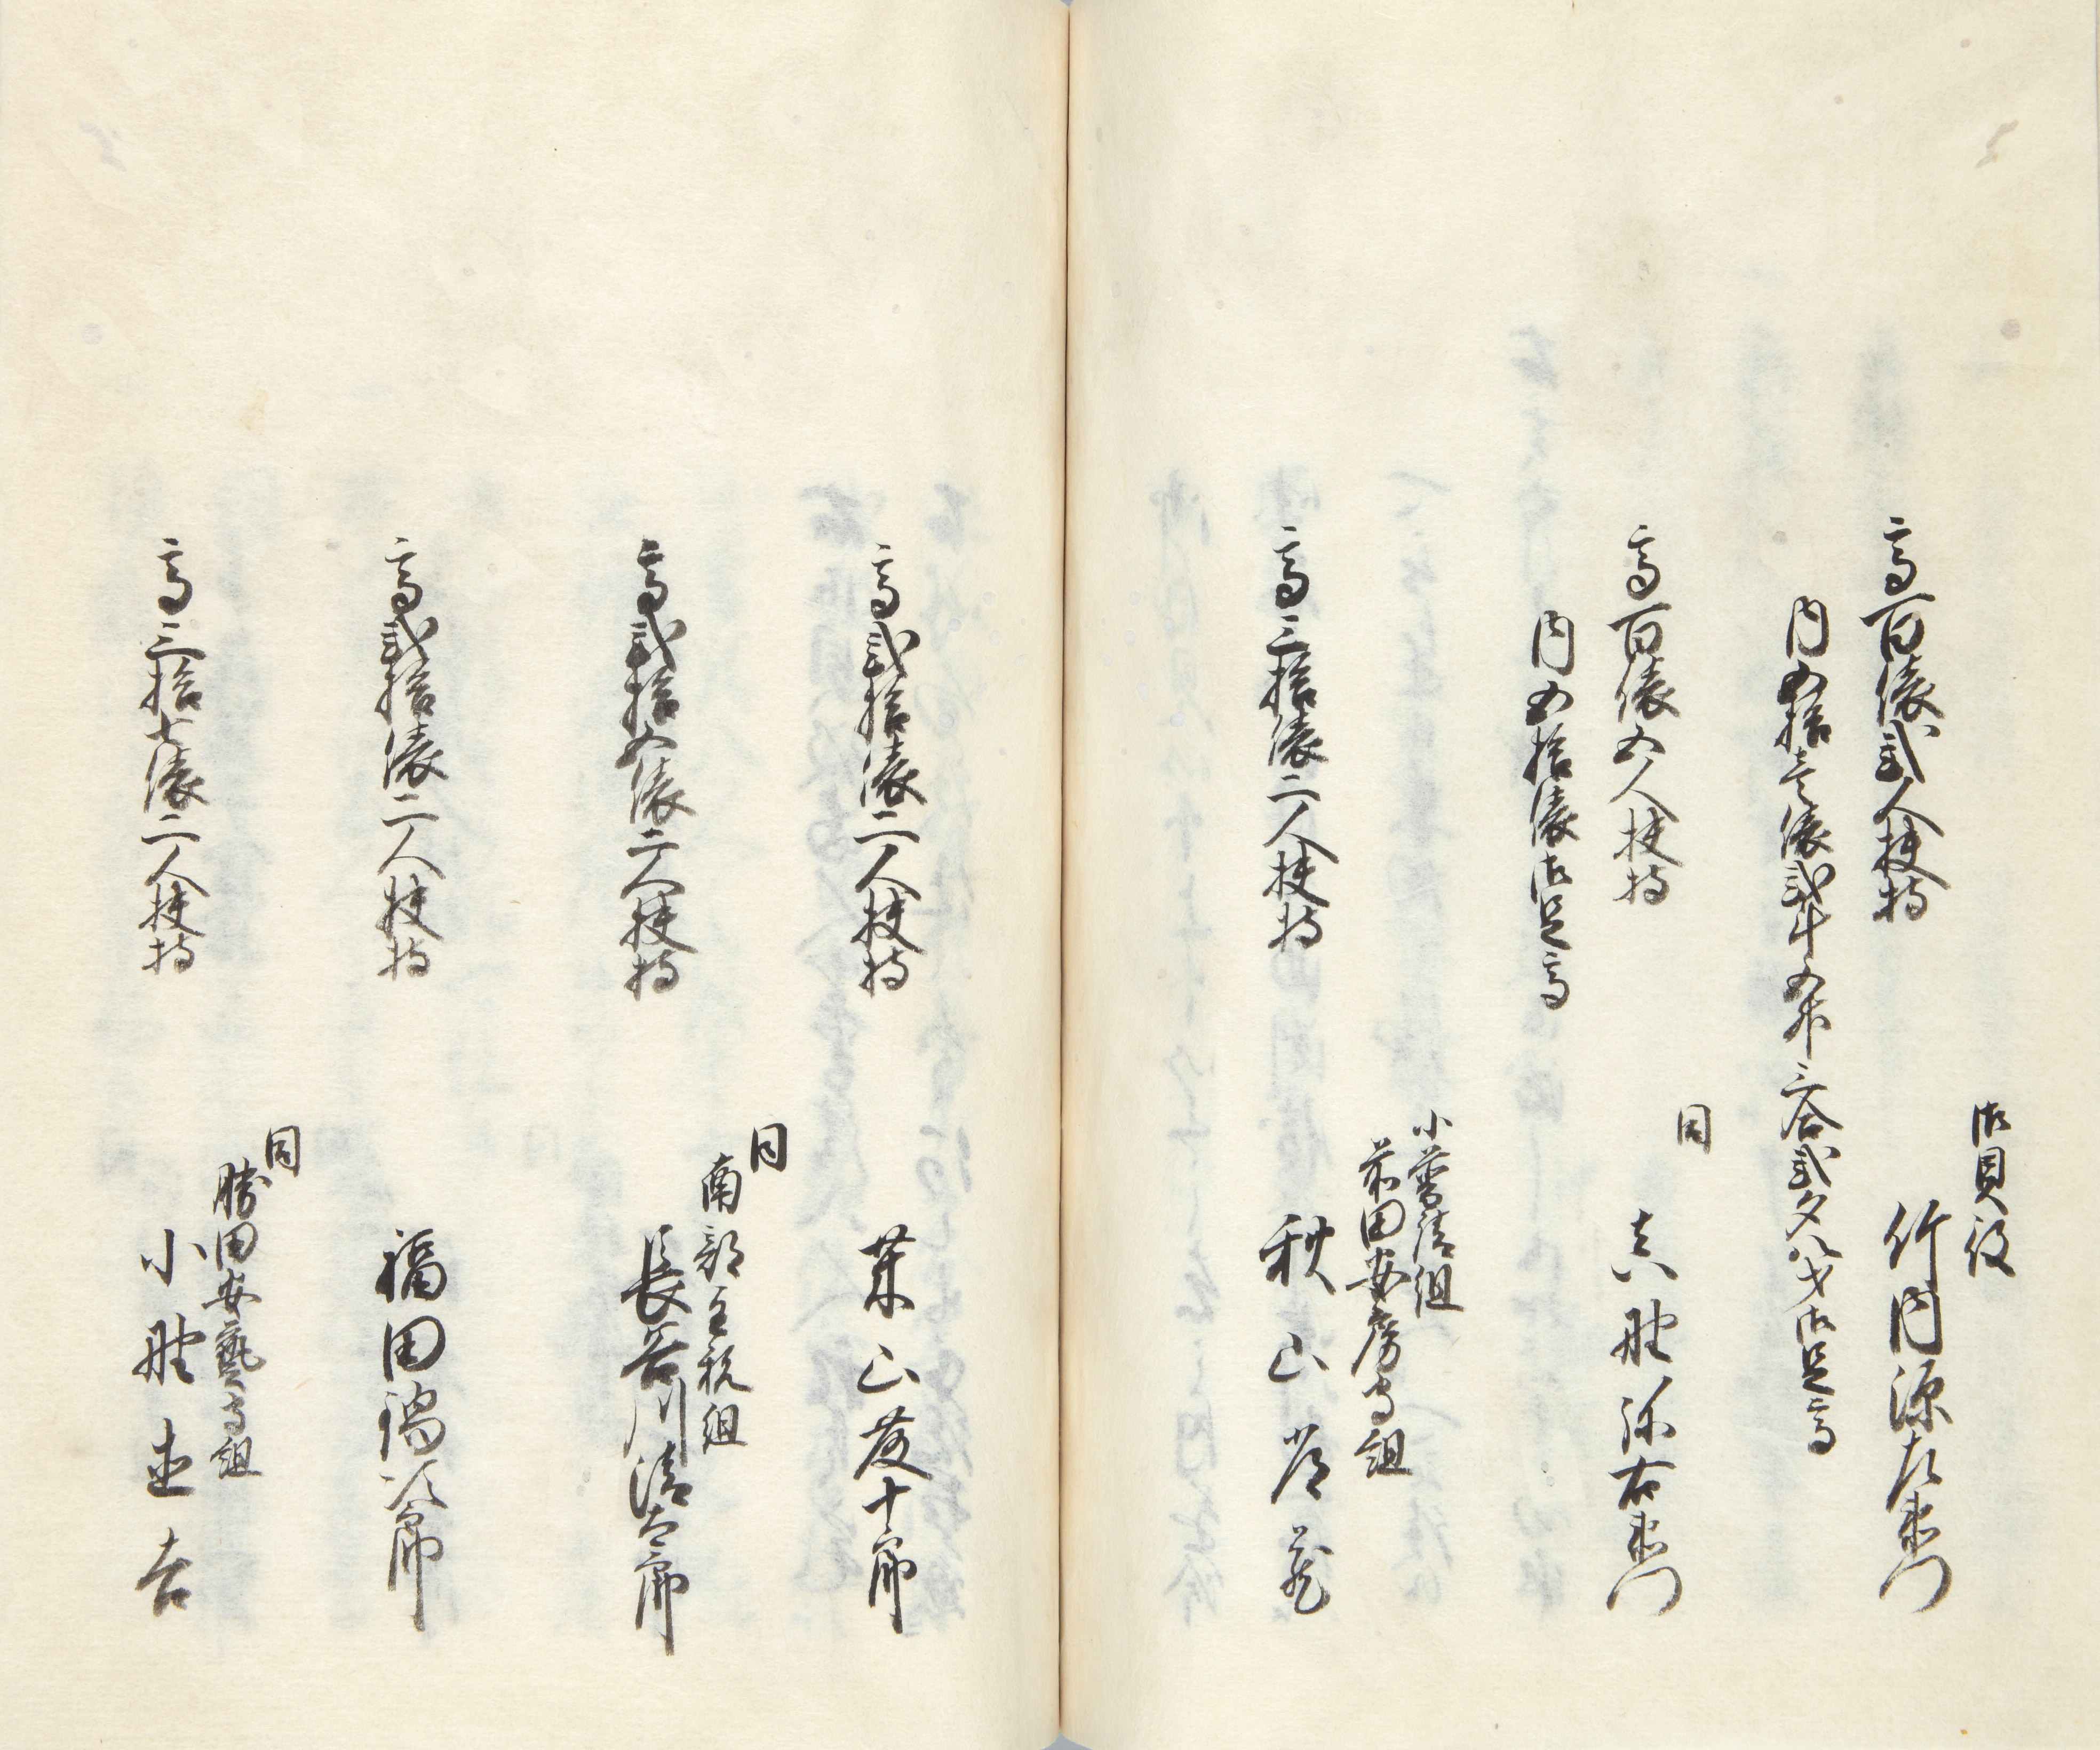 御貝役
高百俵弐人扶持
竹内源左衛門
内五拾壱俵弐斗五升三合弐夕八才御足高
同
高百俵五人扶持
真野弥右衛門
内五拾俵御足高
小普請組
前田安房守組
高三拾俵二人扶持
秋山彦蔵
高弐拾俵二人扶持
葉山藤十郎
同
南部主税組
高弐拾五俵二人扶持
長谷川清太郎
高弐拾俵二人扶持
福田錥次郎
同
勝田安藝守組
高三拾七俵二人扶持
小野直吉